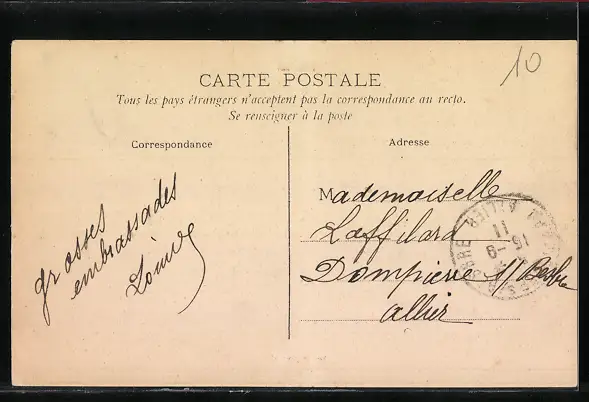 10
CARTE POSTALE
Tous les pays étrangers n'acceptent pas la correspondance au recto.
Se renseigner à la poste
Correspondance
Adresse
grosses
embrassades
Mademoiselle
Laffilard
Dompierre s/ Besbre
allier
ALLIER
11
16-9